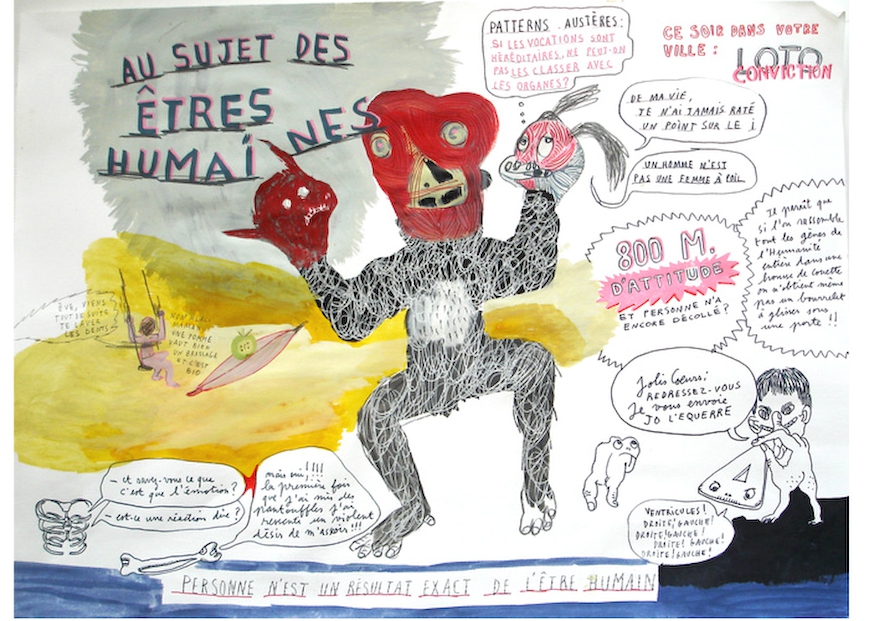 AU SUJET DES
ÊTRES
HUMAINES
PATTERNS AUSTÈRES:
SI LES VOCATIONS SONT
HÉRÉDITAIRES, NE PEUT-ON
PAS LES CLASSER AVEC
LES ORGANES?
CE SOIR DANS VOTRE
VILLE :
LOTO
CONVICTION
DE MA VIE,
JE N'AI JAMAIS RATÉ
UN POINT SUR LE i
UN HOMME N'EST
PAS UNE FEMME À POIL
800 M.
D'ATTITUDE
ET PERSONNE N'A
ENCORE DÉCOLLÉ?
Il paraît que
si l'on rassemble
tout les gènes de
l'Humanité
entière dans une
housse de couette
on n'obtient même
pas un bourrelet
à glisser sous
une porte !!
ÈVE, VIENS
TOUT DE SUITE
TE LAVER
LES DENTS!
MAMAN
UNE POMME
VAUT BIEN
UN BROSSAGE
ET C'EST
BIO
Jolis Coeurs!
REDRESSEZ-VOUS
Je vous envoie
JO L'EQUERRE
VENTRICULES!
DROITE! GAUCHE!
DROITE! GAUCHE!
DROITE! GAUCHE!
DROITE! GAUCHE!
- et savez-vous ce que
c'est que l'émotion?
- est-ce une réaction dire?
mais oui,!!!!
la première fois
que j'ai mis des
pantouffles j'ai
ressenti un violent
désir de m'assoir!!!
PERSONNE N'EST UN RÉSULTAT EXACT DE L'ÊTRE HUMAIN